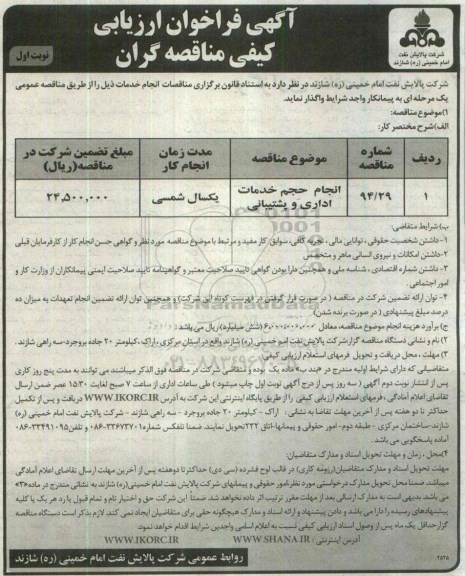 آگهی فراخوان ارزیابی
کیفی مناقصه گران
نوبت اول
شرکت پالایش نفت
امام خمینی (ره) شازند
شرکت پالایش نفت امام خمینی (ره) شازند در نظر دارد به استناد قانون برگزاری مناقصات انجام خدمات ذیل را از طریق مناقصه عمومی
یک مرحله ای به پیمانکار واجد شرایط واگذار نماید.
۱)موضوع مناقصه:
الف)شرح مختصر کار:
ردیف شماره مناقصه موضوع مناقصه مدت زمان انجام کار مبلغ تضمین شرکت در مناقصه(ریال)
۱ ۹۴/۲۹ انجام حجم خدمات اداری و پشتیبانی یکسال شمسی ۲۴,۵۰۰,۰۰۰
ب)شرایط متقاضی:
۱-داشتن شخصیت حقوقی، توانایی مالی، تجربه کافی، سوابق کار مفید و مرتبط با موضوع مناقصه مورد نظر و گواهی حسن انجام کار از کارفرمایان قبلی
۲-داشتن امکانات و نیروی انسانی ماهر و متخصص
۳- داشتن شماره اقتصادی، شناسه ملی و همچنین دارا بودن گواهی تایید صلاحیت معتبر و گواهینامه تایید صلاحیت ایمنی پیمانکاران از وزارت کار و
امور اجتماعی
۴- توان ارائه تضمین شرکت در مناقصه (در صورت قرار گرفتن در فهرست کوتاه این شرکت) و همچنین توان ارائه تضمین انجام تعهدات به میزان ده
درصد مبلغ پیشنهادی (در صورت برنده شدن)
ج) برآورد هزینه انجام موضوع مناقصه، معادل ۶,۰۰۰,۰۰۰,۰۰۰ (شش میلیارد) ریال می باشد.
۲) نام و نشانی دستگاه مناقصه گزار:شرکت پالایش نفت امام خمینی (ره) شازند واقع در استان مرکزی، اراک، کیلومتر ۲۰ جاده بروجرد-سه راهی شازند.
۳) مهلت، محل دریافت و تحویل فرمهای استعلام ارزیابی کیفی:
متقاضیانی که دارای شرایط اولیه مندرج در «بند ب» ماده یک بوده و متقاضی شرکت در مناقصه فوق الذکر میباشند می توانند به مدت پنج روز کاری
پس از انتشار نوبت دوم آگهی (سه روز پس از درج آگهی نوبت اول چاپ میشود) طی ساعات اداری از ساعت ۷ صبح لغایت ۱۵:۳۰ عصر ضمن ارسال
تقاضای اعلام آمادگی، فرمهای استعلام ارزیابی کیفی را از طریق پایگاه اینترنتی این شرکت به آدرس WWW.IKORC.IR دریافت و پس از تکمیل
حداکثر تا دو هفته پس از آخرین مهلت تقاضا به نشانی: اراک - کیلومتر ۲۰ جاده بروجرد - سه راهی شازند - شرکت پالایش نفت امام خمینی (ره)
شازند-ساختمان مرکزی - طبقه دوم- امور حقوقی و پیمانها-اتاق ۲۳۲ تحویل نمایند. ضمنا تلفکس شماره ۰۸۶-۳۳۶۷۳۷۰۱ و تلفن ۰۸۶-۳۳۴۹۱۰۹۵
آماده پاسخگویی می باشد.
۴)محل، زمان و مهلت تحویل اسناد و مدارک متقاضیان:
مهلت تحویل اسناد و مدارک متقاضیان(رزومه کاری) در قالب لوح فشرده (سی دی) حداکثر تا دو هفته پس از آخرین مهلت ارسال تقاضای اعلام آمادگی
میباشد، ضمنا محل تحویل مدارک درخواستی مورد نظر امور حقوقی و پیمانهای شرکت پالایش نفت امام خمینی(ره) شازند به نشانی مندرج در ماده «۳»
می باشد. بدیهی است به مدارک ارسالی بعد از مهلت مقرر ترتیب اثر داده نخواهد شد. ضمنا این شرکت حق و اختیار تام و تمام قبول یا رد هر یک یا کلیه
پیشنهادهای رسیده را دارا می باشد و دادن پیشنهاد و ارائه اسناد و مدارک هیچگونه حقی برای متقاضیان ایجاد نمی کند. لازم بذکر است دستگاه مناقصه
گزار حداقل یک ماه پس از وصول اسناد ارزیابی کیفی نسبت به اعلام اسامی واجدین شرایط اقدام خواهد نمود.
آدرس اینترنتی: WWW.SHANA.IR WWW.IKORC.IR
۲۵۲۵
روابط عمومی شرکت پالایش نفت امام خمینی (ره) شازند